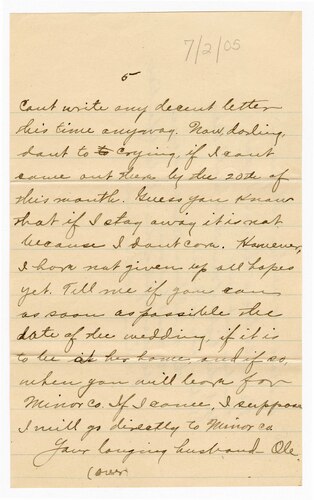 7/2/05
5
Cant write any decent letter
this time anyway. Now, darling,
dont to to crying, if I cant
come out there by the 20th of
this month. Guess you know
that if I stay away it is not
because I dont care. However,
I have not given up all hopes
yet. Tell me if you can
as soon as possible the
date of the wedding, if it is
to be at her home, and if so,
when you will leave for
Minor co. If I come, I suppose
I will go directly to Minor co
Your longing husband Ole
(over